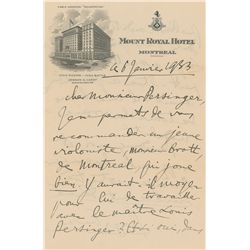 MOUNT ROYAL HOTEL
MONTREAL
le 6 février 1933
cher Monsieur Persinger,
Je me permets de vous
recommander un jeune
violoniste, monsieur Brott,
de Montréal qui joue
bien. Y aurait-il moyen
pour lui de travailler
avec le maître Louis
Persinger? Si oui, dans